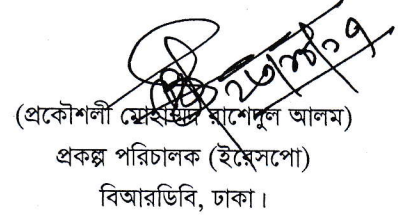 ২৩/০৮/১৭
(প্রকৌশলী মোহাম্মদ রাশেদুল আলম)
প্রকল্প পরিচালক (ইরেসপো)
বিআরডিবি, ঢাকা।